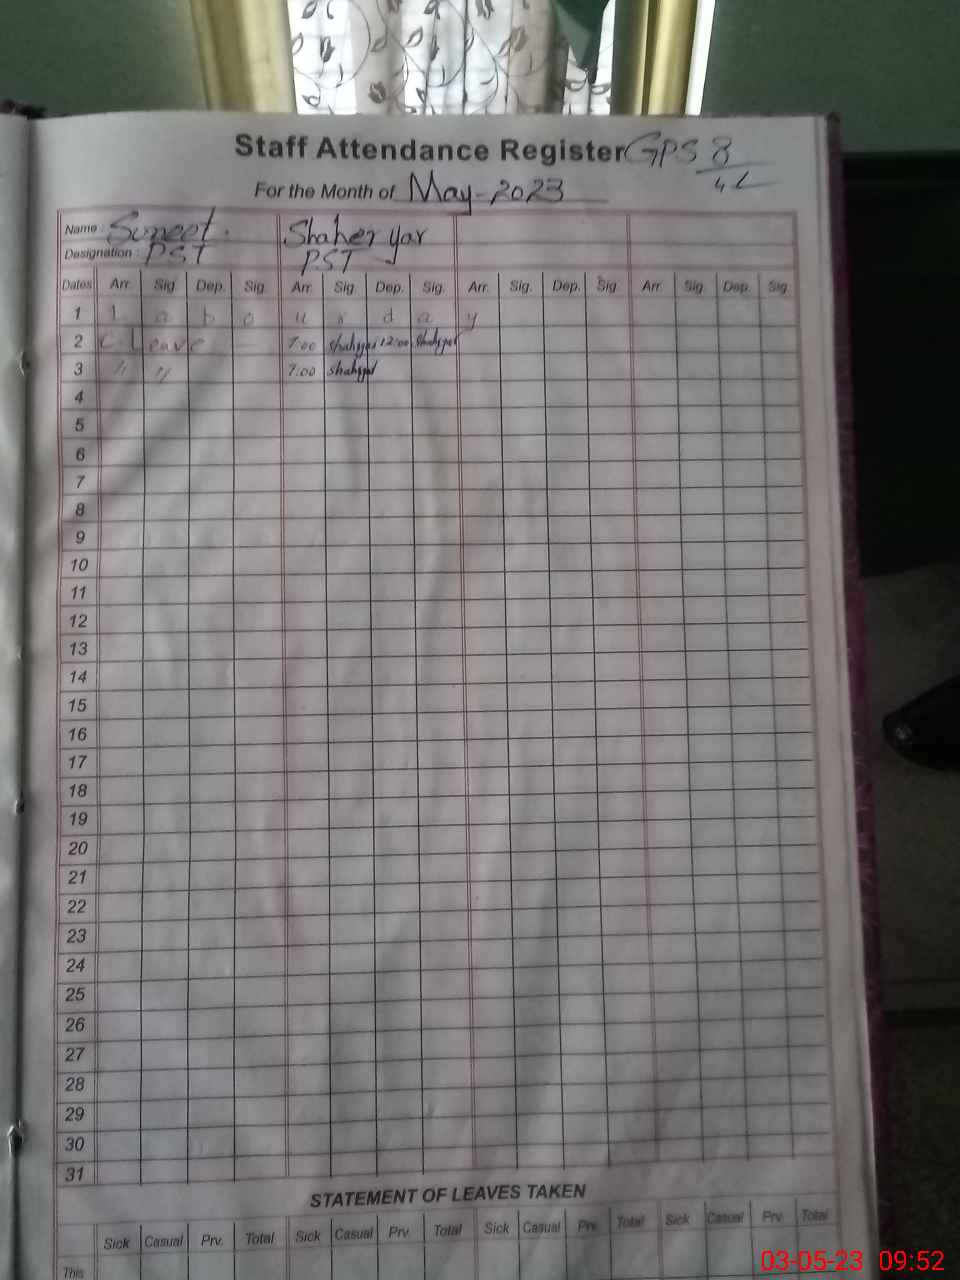 Staff Attendance Register GPS 8/4L
For the Month of May-2023
Name : Suneet. Shaher yar
Designation : PST PST
Dates Arr. Sig. Dep. Sig. Arr. Sig. Dep. Sig. Arr. Sig. Dep. Sig. Arr. Sig. Dep. Sig.
1 L a b o u r d a y
2 C. Leave — 7:00 shahyar 12:00 Shahyar
3 " " 7.00 shahyar
4
5
6
7
8
9
10
11
12
13
14
15
16
17
18
19
20
21
22
23
24
25
26
27
28
29
30
31
STATEMENT OF LEAVES TAKEN
Sick Casual Prv. Total Sick Casual Prv. Total Sick Casual Prv. Total Sick Casual Prv. Total
This
03-05-23 09:52